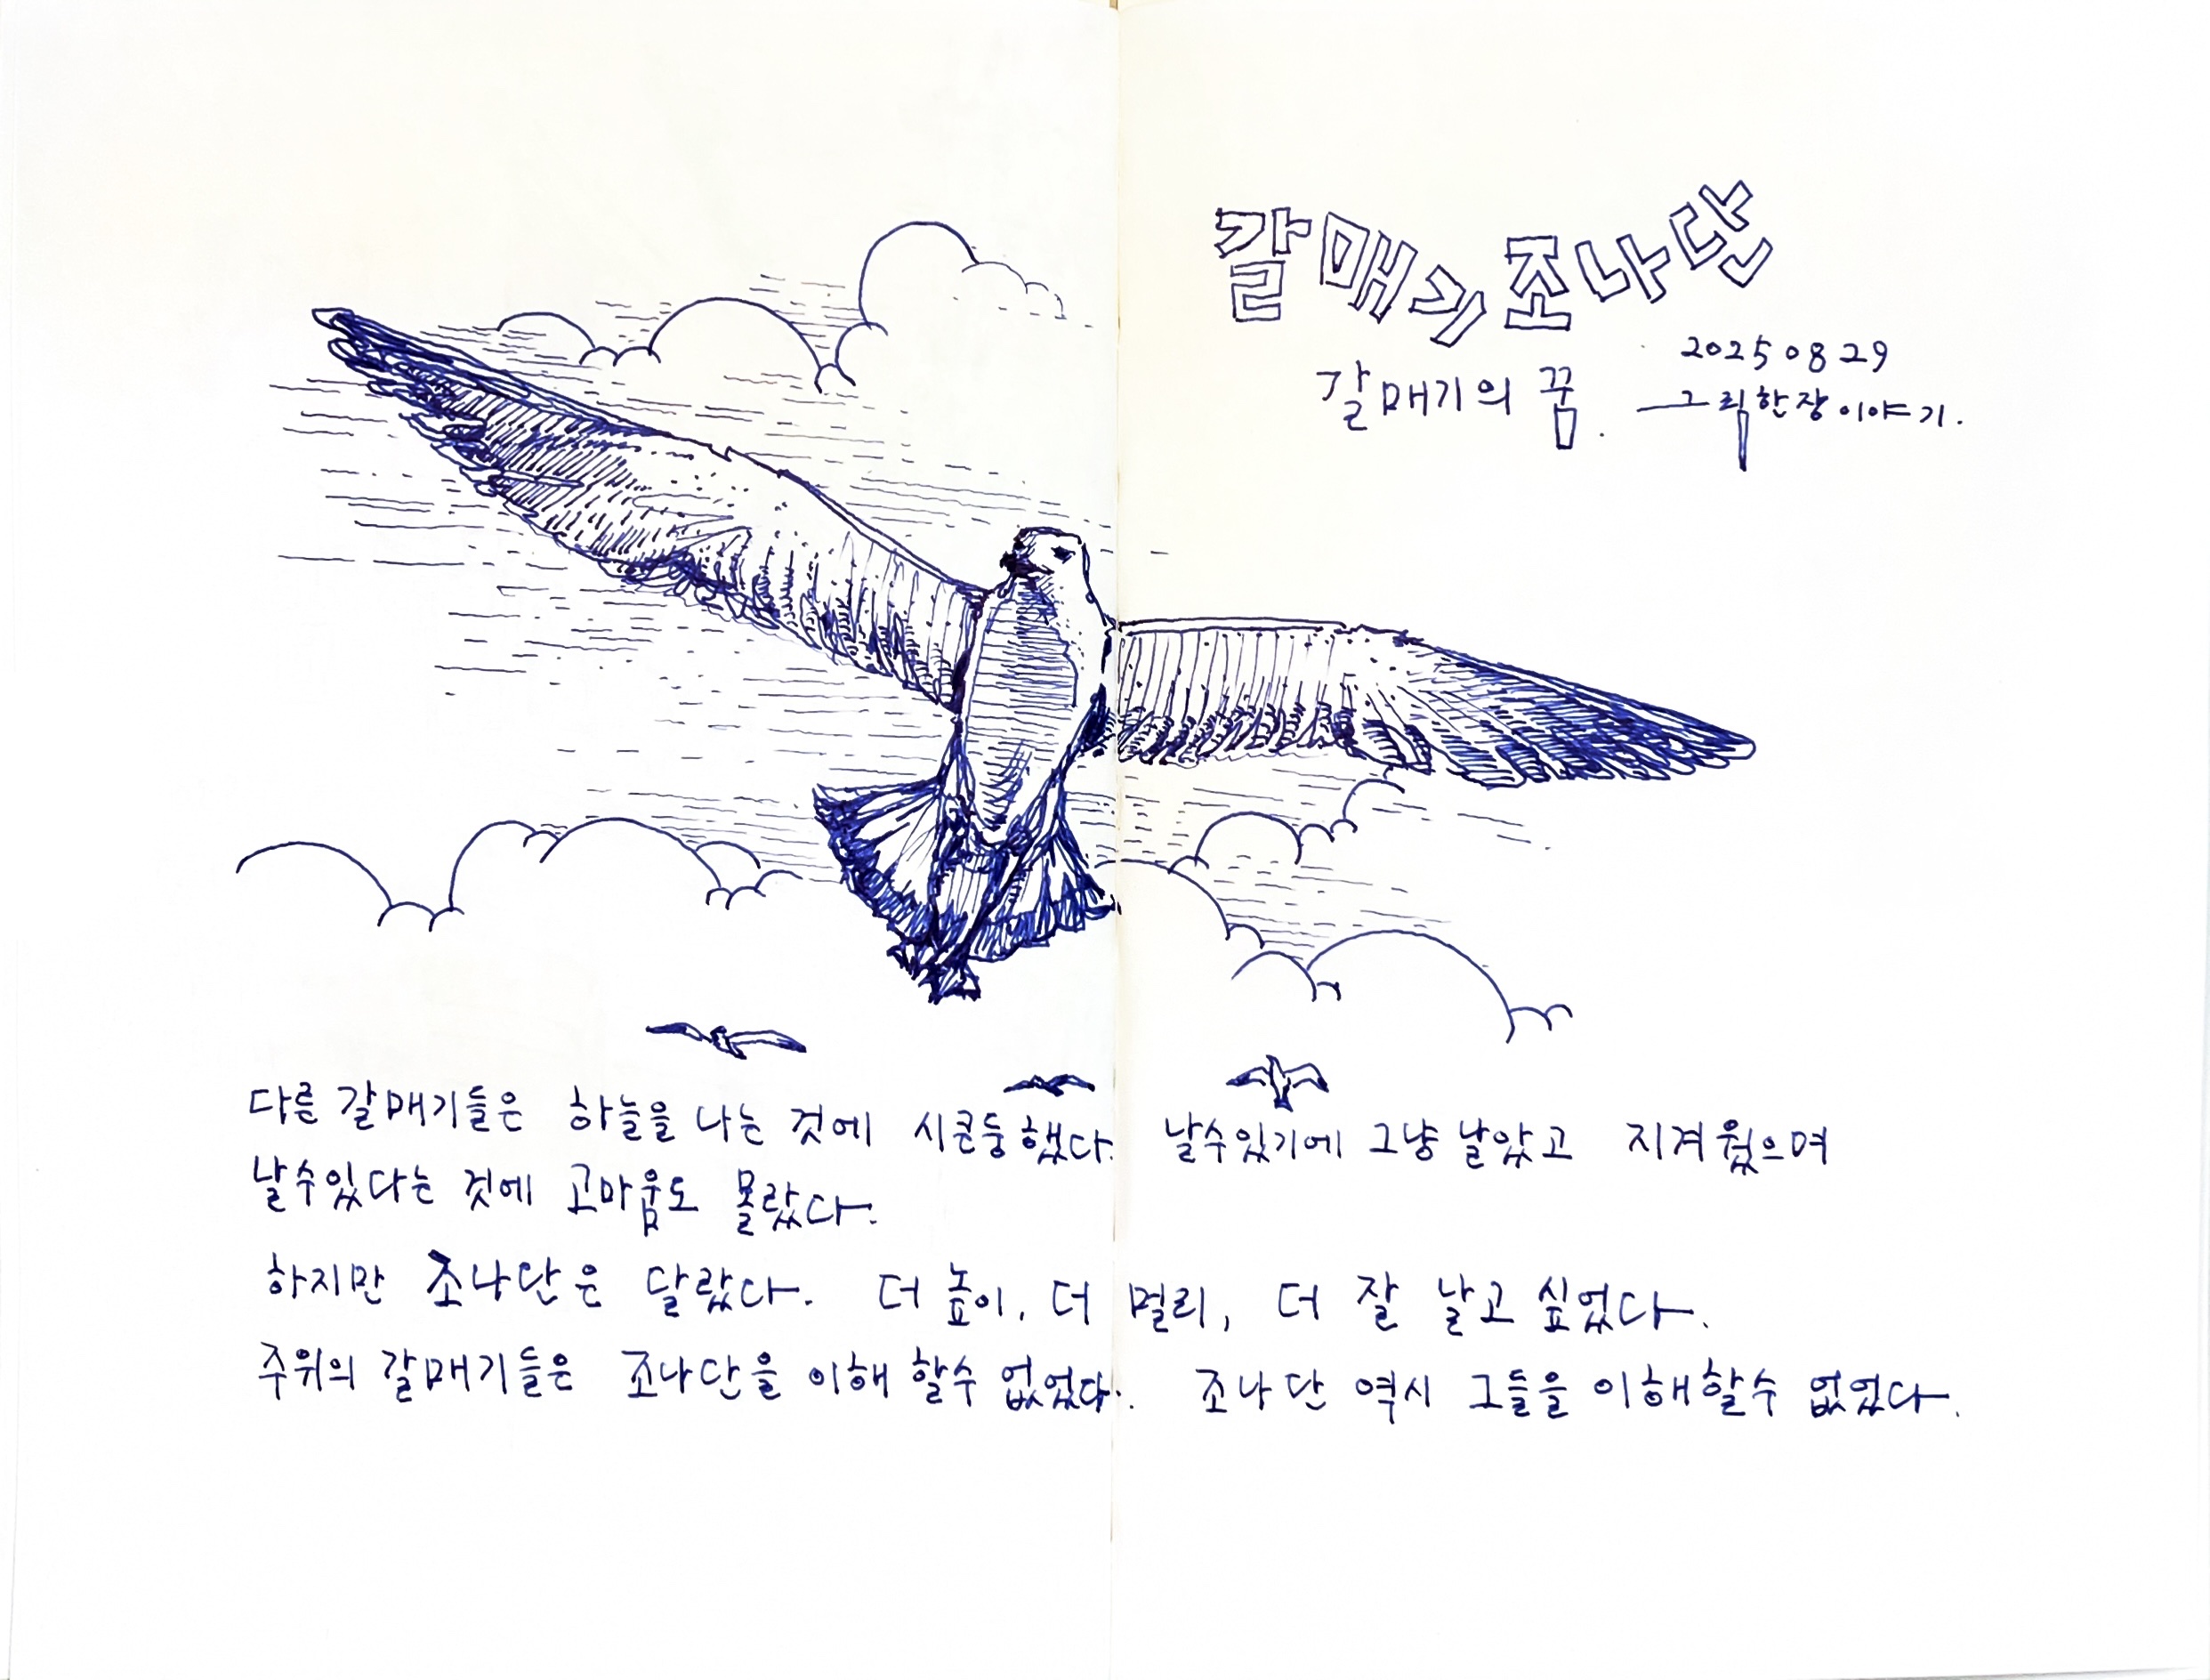 갈매기 조나단
20250829
갈매기의 꿈. 그림한장이야기.
다른 갈매기들은 하늘을 나는 것에 시큰둥했다. 날수있기에 그냥 날았고 지겨웠으며
날수있다는 것에 고마움도 몰랐다.
하지만 조나단은 달랐다. 더 높이, 더 멀리, 더 잘 날고 싶었다.
주위의 갈매기들은 조나단을 이해 할수 없었다. 조나단 역시 그들을 이해할수 없었다.